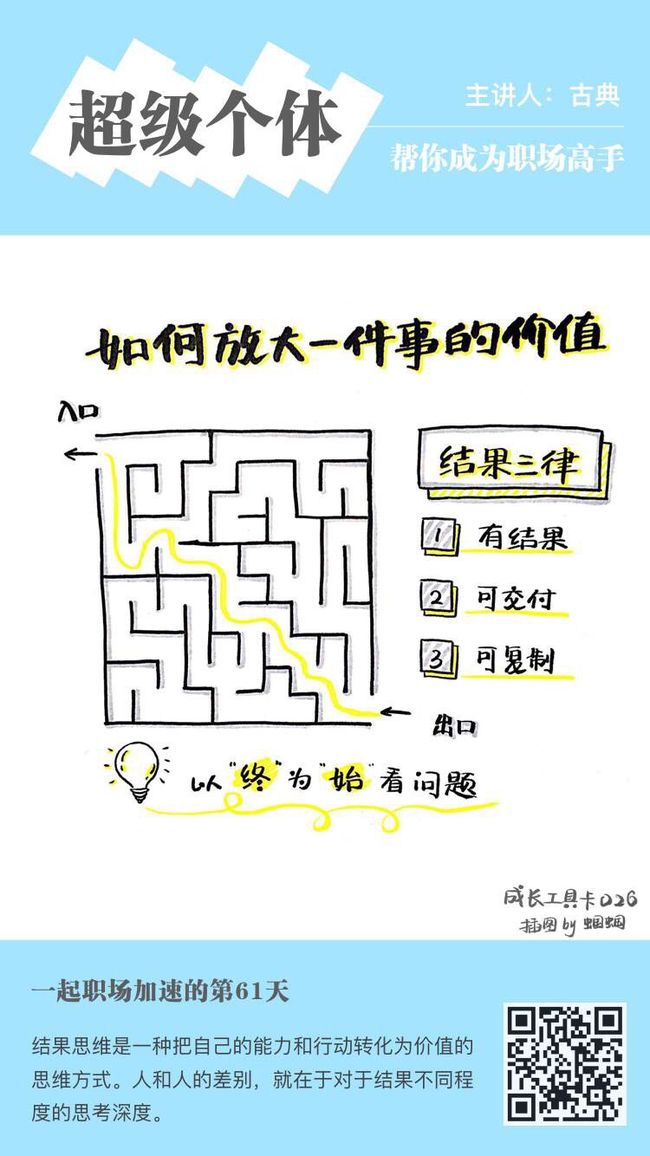 超级个体
主讲人：古典
帮你成为职场高手
如何放大一件事的价值
入口
结果三律
1 有结果
2 可交付
3 可复制
出口
以"终"为"始"看问题
成长工具卡026
插图by 蝈蝈
一起职场加速的第61天
结果思维是一种把自己的能力和行动转化为价值的
思维方式。人和人的差别，就在于对于结果不同程
度的思考深度。